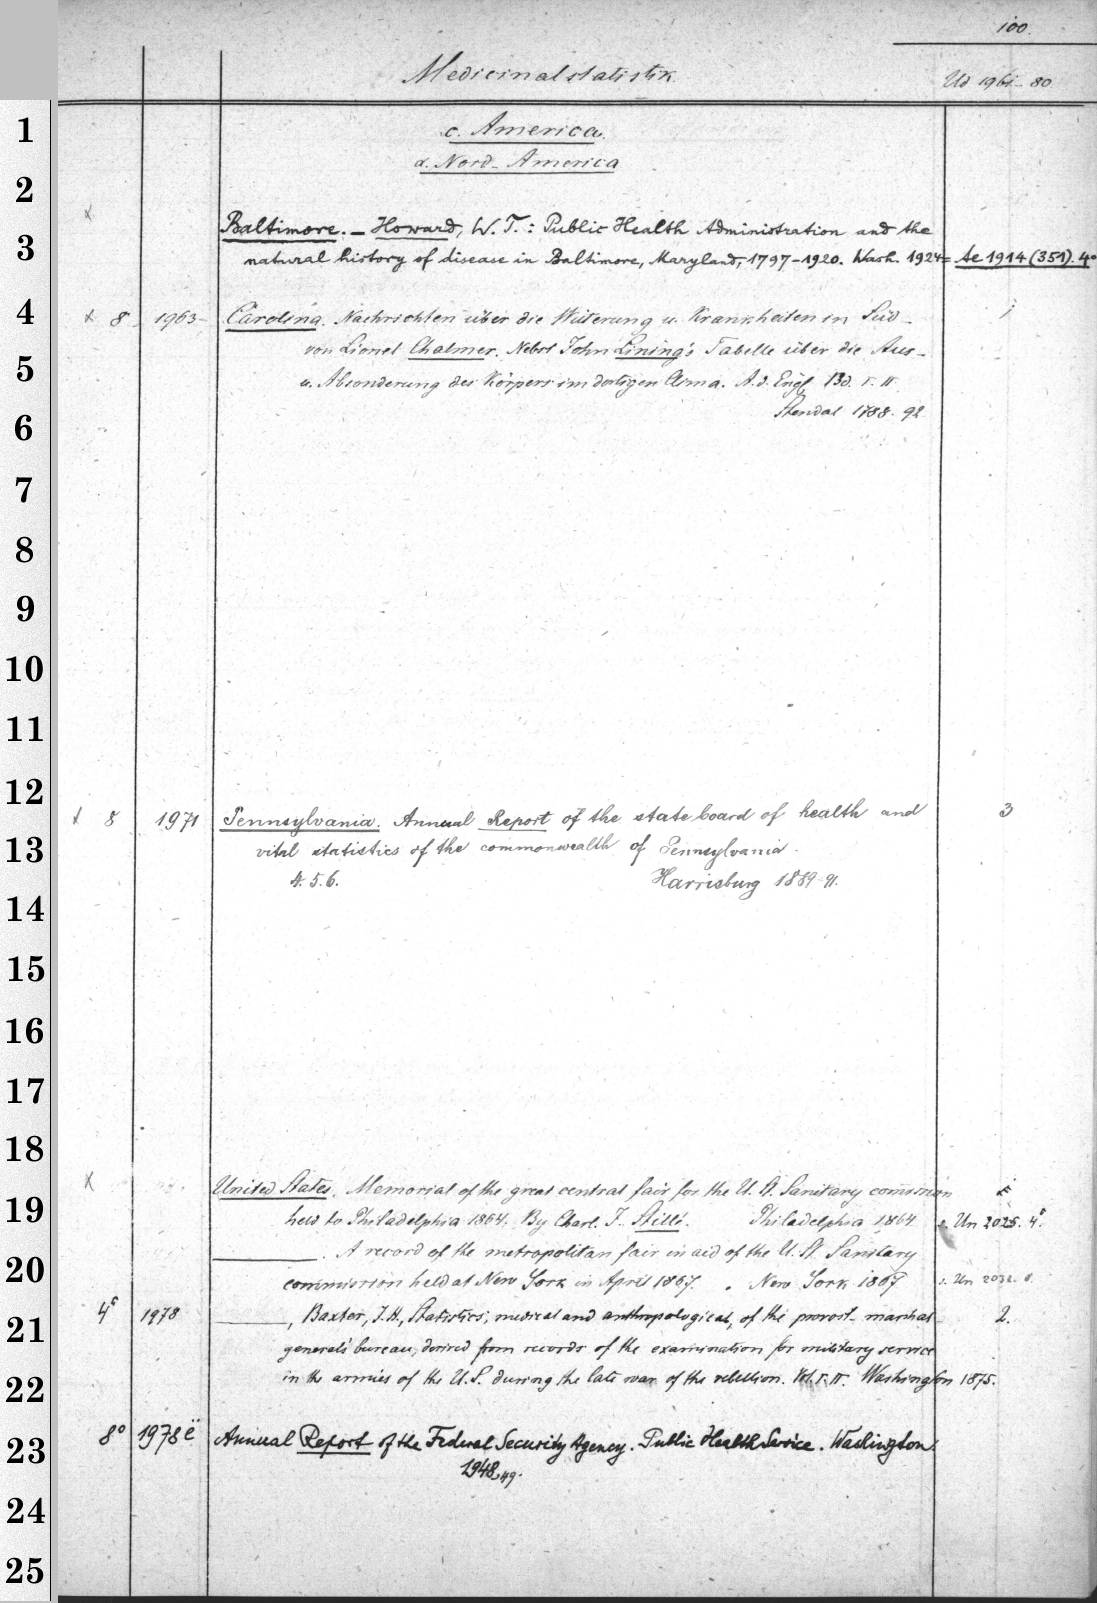 100.
Medicinalstatistik Ud 1961-80
1
c. America.
α. Nord-America
2
x
Baltimore. - Howard, W. T.: Public Health Administration and the
3
natural history of disease in Baltimore, Maryland, 1797-1920. Wash. 1924 = Ae 1914 (351). 4°
4
x 8 1963 Carolina. Nachrichten über die Witterung u. Krankheiten in Süd-
von Lionel Chalmer. Nebst John Lining's Tabelle über die Aus-
5
u. Absonderung des Körpers im dortigen Clima. A. d. Engl. Bd. I. II.
6
Stendal 1788. 92
7
8
9
10
11
12
x 8 1971 Pennsylvania. Annual Report of the state board of health and 3
13
vital statistics of the commonwealth of Pennsylvania.
4. 5. 6. Harrisburg 1889-91.
14
15
16
17
18
x
United States. Memorial of the great central fair for the U. S. Sanitary commission
19
held to Philadelphia 1864. By Charl. J. Stillé. Philadelphia 1864 s. Un 2025. 4°.
. A record of the metropolitan fair in aid of the U. S. Sanitary
20
commission held at New York in April 1867. New York 1867 s. Un 2032. 8.
4° 1978 , Baxter, J. H., Statistics, medical and anthropological, of the provost-marshal- 2.
21
general's bureau, derived from records of the examination for military service
22
in the armies of the U. S. during the late war of the rebellion. Vol. I. II. Washington 1875.
8° 1978 ë Annual Report of the Federal Security Agency. Public Health Service. Washington.
23
1948, 49.
24
25